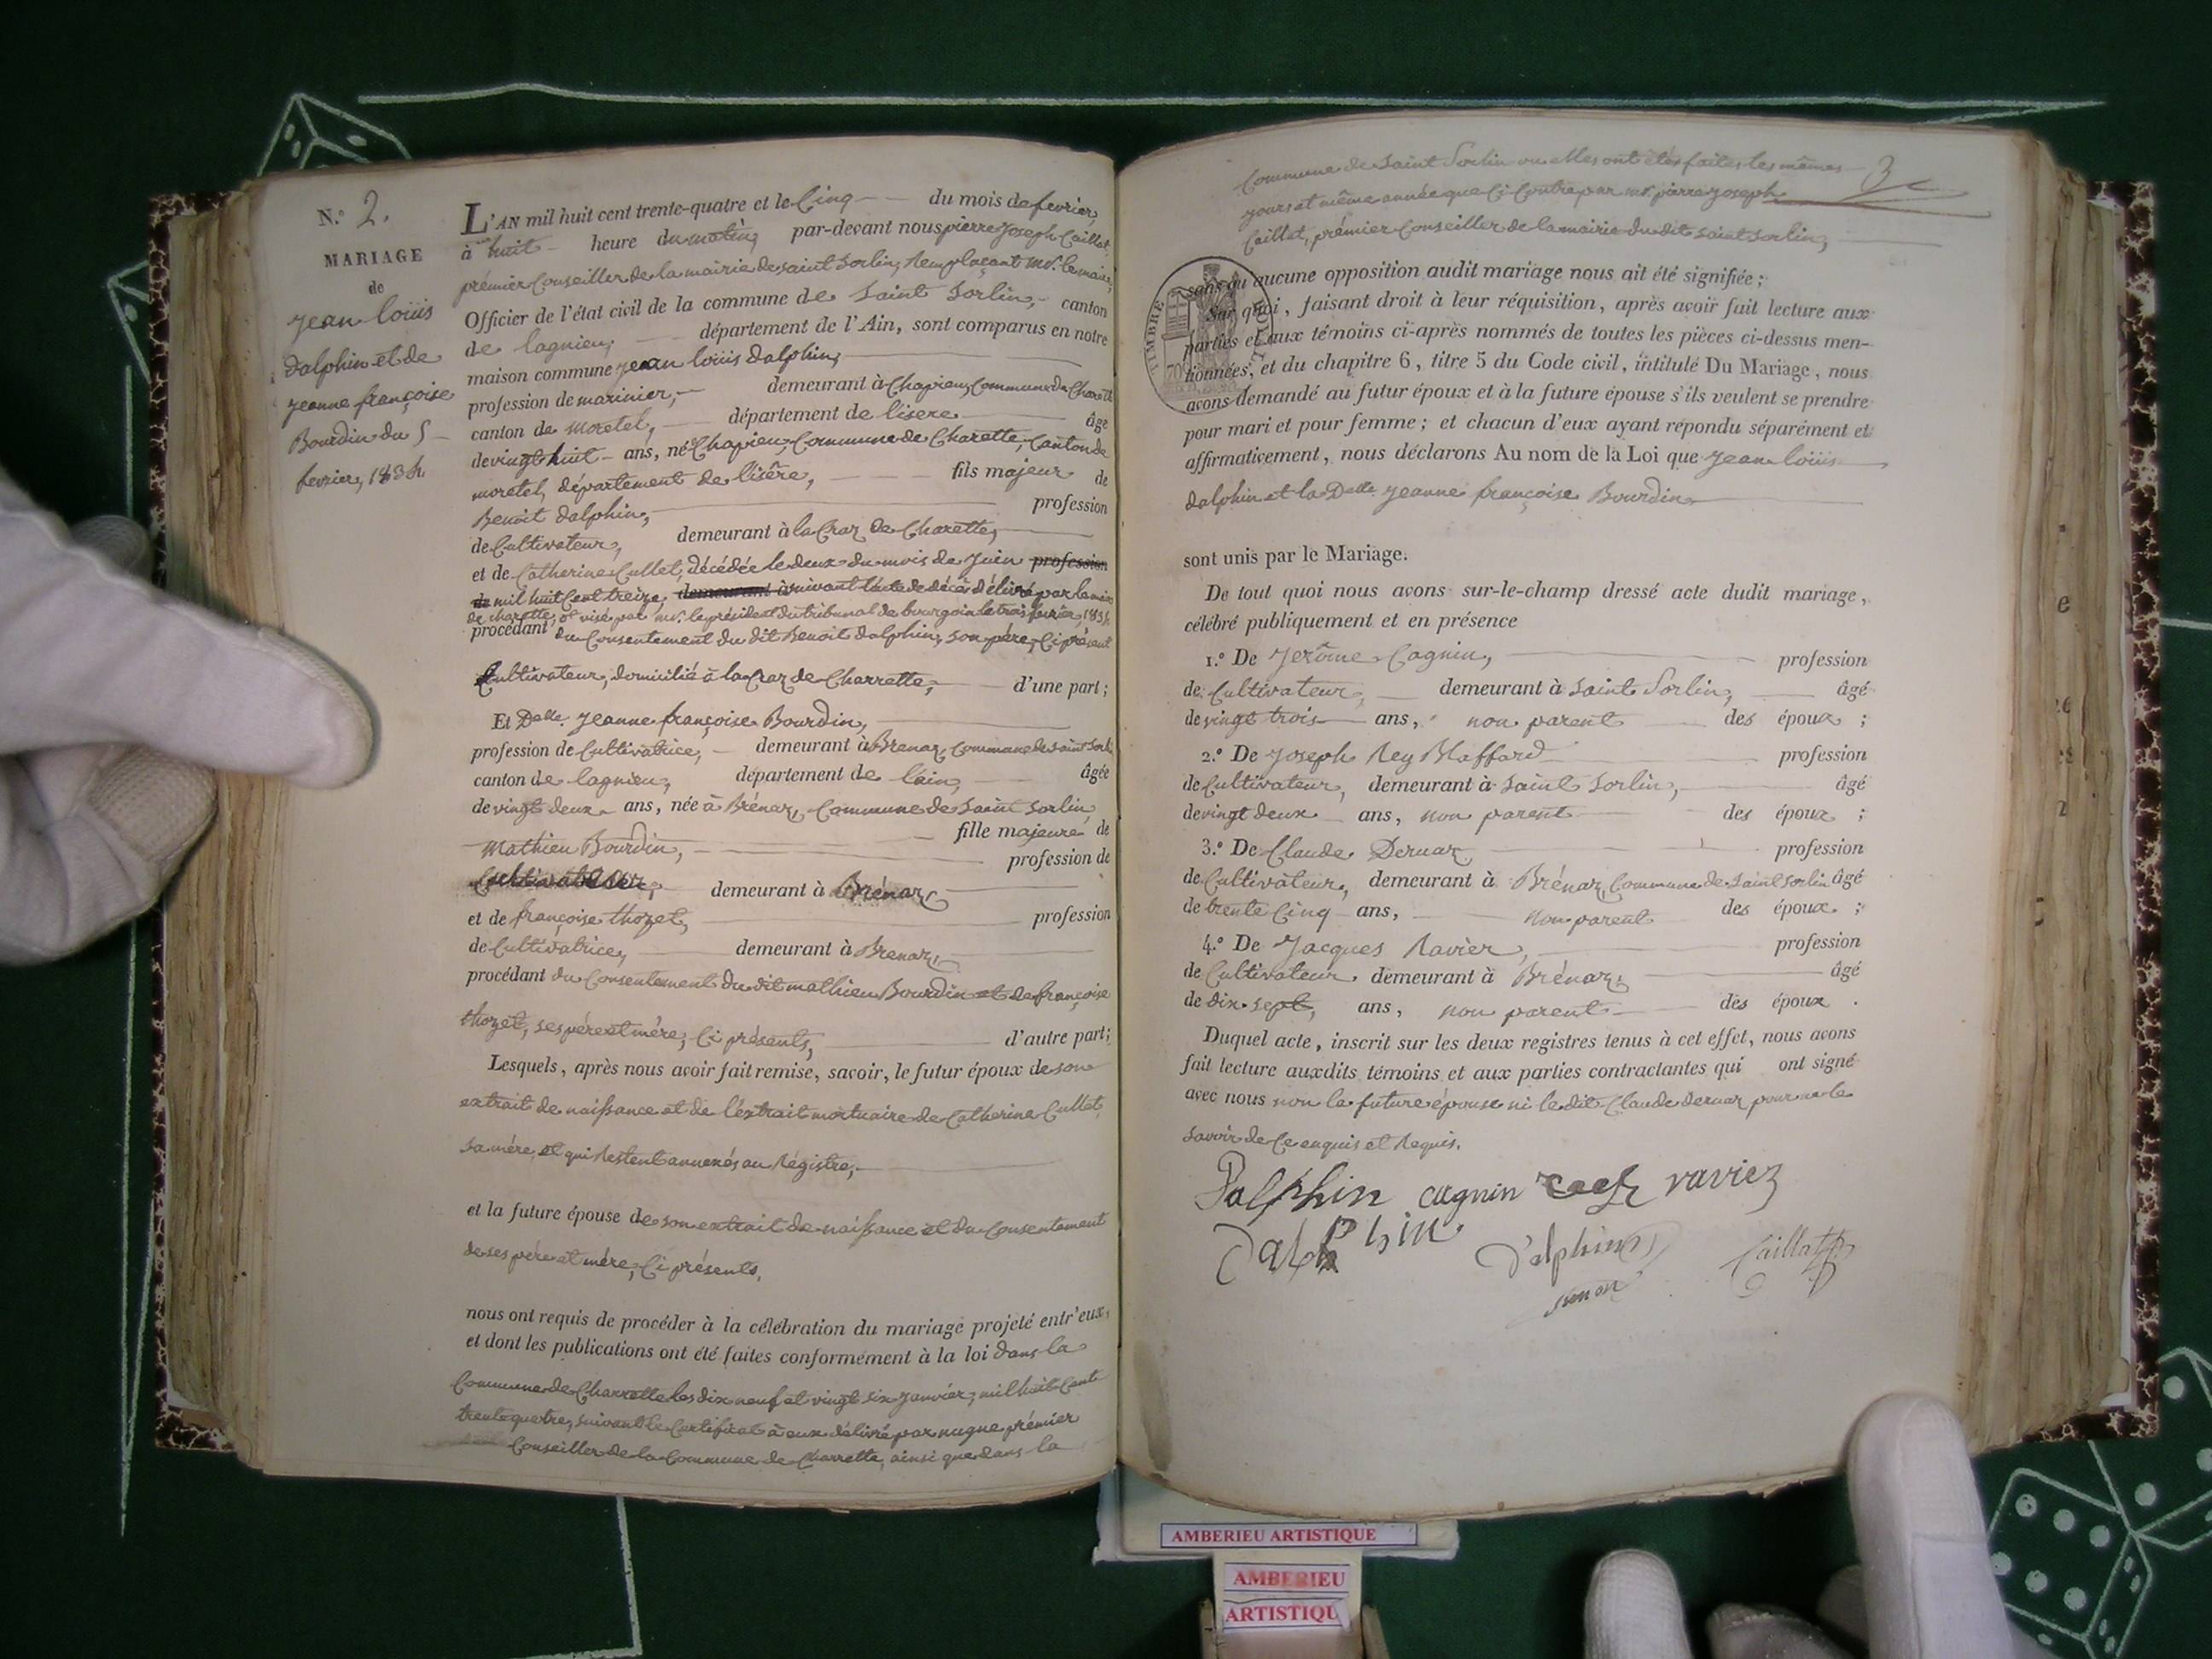 N.º 2.
MARIAGE
de
jean loüis
dalphin et de
jeanne françoise
Bourdin du 5
fevrier, 1834
L'AN mil huit cent trente-quatre et le Cinq du mois de fevrier,
à huit heure du matin, par-devant nous pierre joseph Caillat,
prémier Conseiller de la mairie de saint Sorlin, Remplaçant mr. le maire,
Officier de l'état civil de la commune de Saint Sorlin, canton
de lagnieu, département de l'Ain, sont comparus en notre
maison commune jean loüis dalphin,
profession de marinier, demeurant à Chapieu, Commune de Charette
canton de moretel, département de l'isere âgé
de vingt huit ans, né à Chapieu, Commune de Charette, Canton de
moretel, département de l'isêre, fils majeur de
Benoit dalphin, profession
de Cultivateur, demeurant à la Craz de Charette,
et de Catherine Cullet, décédée le deux du mois de juin profession
de mil huit Cent treize, demeurant à suivant l'acte de décès délivré par le maire
de charette, et visé par mr. le président du tribunal de bourgoin le trois fevrier, 1834
procédant du Consentement du dit Benoit dalphin, son père, Ci présent
Cultivateur, domicilié à la Craz de Charrette, d'une part;
Et Delle. jeanne françoise Bourdin,
profession de Cultivatrice, demeurant à Brenaz, Commune de saint Sorlin
canton de lagnieu, département de l'ain, âgée
de vingt deux ans, née à Brénaz, Commune de Saint Sorlin,
fille majeure de
Mathieu Bourdin, profession de
Cultivateur, demeurant à Brénaz
et de françoise thozet, profession
de Cultivatrice, demeurant à Brenaz,
procédant du Consentement du dit mathieu Bourdin et de françoise
thozet, ses père et mère, Ci présents, d'autre part;
Lesquels, après nous avoir fait remise, savoir, le futur époux de son
extrait de naissance et de l'extrait mortuaire de Catherine Cullet,
sa mére, et qui Restent annexés au Régistre,
et la future épouse de son extrait de naissance et du Consentement
de ses père et mére, Ci présents,
nous ont requis de procéder à la célébration du mariage projeté entr'eux,
et dont les publications ont été faites conformément à la loi dans la
Commune de Charrette les dix neuf et vingt six janvier, mil huit Cent
trente quatre, suivant le Certificat à eux délivré par nugue prémier
Conseiller de la Commune de Charrette, ainsi que dans la
3
Commune de Saint Sorlin ou elles ont étés faites les mêmes
jours et même année que Ci Contre par mr. pierre joseph
Caillat, prémier Conseiller de la mairie du dit saint Sorlin,
TIMBRE ROYAL
sans qu'aucune opposition audit mariage nous ait été signifiée;
Sur quoi, faisant droit à leur réquisition, après avoir fait lecture aux
parties et aux témoins ci-après nommés de toutes les pièces ci-dessus men-
tionnées, et du chapitre 6, titre 5 du Code civil, intitulé Du Mariage, nous
avons demandé au futur époux et à la future épouse s'ils veulent se prendre
pour mari et pour femme; et chacun d'eux ayant répondu séparément et
affirmativement, nous déclarons Au nom de la Loi que jean loüis
dalphin et la Delle. jeanne françoise Bourdin
sont unis par le Mariage.
De tout quoi nous avons sur-le-champ dressé acte dudit mariage,
célébré publiquement et en présence
1.º De Jerôme Cagnin, profession
de Cultivateur, demeurant à Saint Sorlin, âgé
de vingt trois ans, non parent des époux;
2.º De Joseph Rey Blaffard profession
de Cultivateur, demeurant à Saint Sorlin, âgé
de vingt deux ans, non parent des époux;
3.º De Claude Dernaz profession
de Cultivateur, demeurant à Brénaz Commune de Saint Sorlin âgé
de trente Cinq ans, non parent des époux;
4.º De Jacques Ravier, profession
de Cultivateur demeurant à Brénaz, âgé
de dix-sept, ans, non parent des époux.
Duquel acte, inscrit sur les deux registres tenus à cet effet, nous avons
fait lecture auxdits témoins et aux parties contractantes qui ont signé
avec nous non la future épouse ni le dit Claude dernaz pour ne le
savoir de Ce enquis et Requis.
Dalphin cagnin ravier
Dalphin Dalphin Caillat
simon
AMBERIEU ARTISTIQUE
AMBERIEU
ARTISTIQU